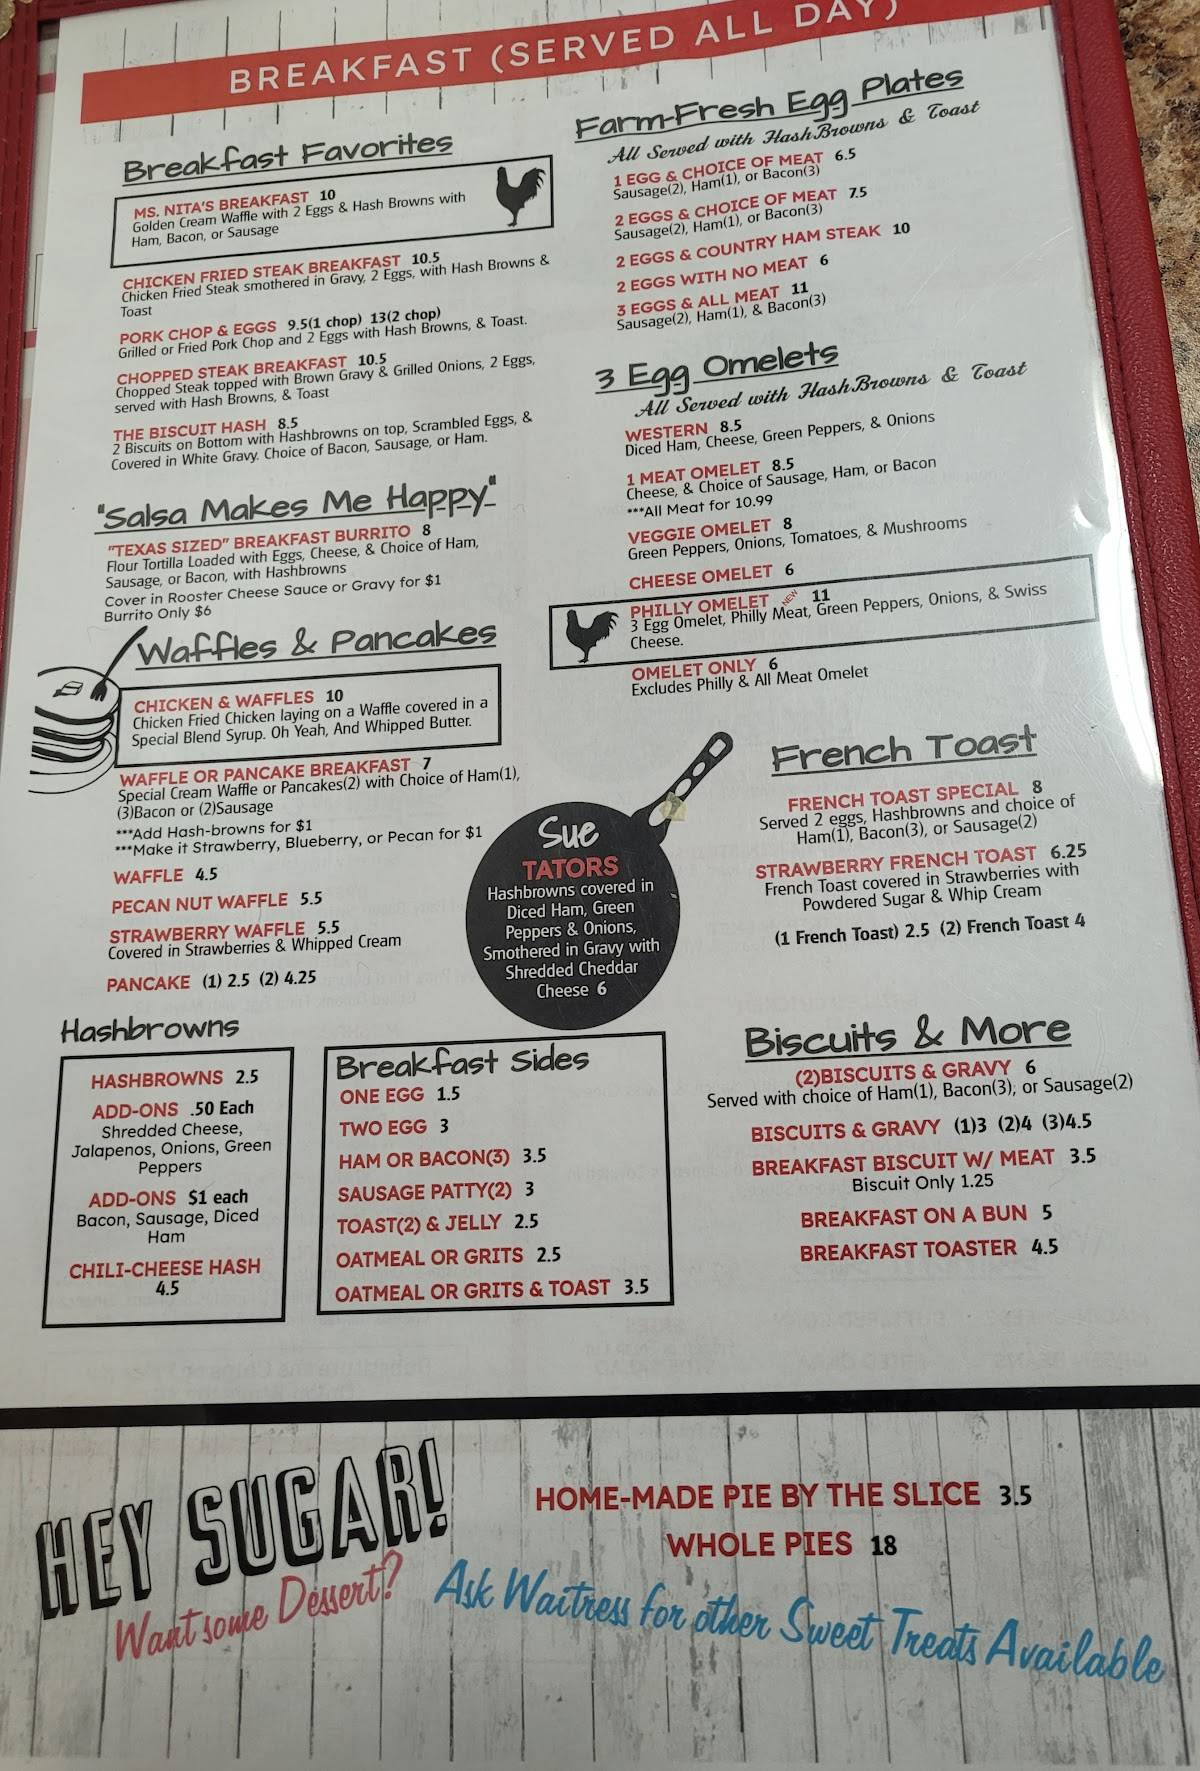 BREAKFAST (SERVED ALL DAY)
Breakfast Favorites
MS. NITA'S BREAKFAST 10
Golden Cream Waffle with 2 Eggs & Hash Browns with
Ham, Bacon, or Sausage
CHICKEN FRIED STEAK BREAKFAST 10.5
Chicken Fried Steak smothered in Gravy, 2 Eggs, with Hash Browns &
Toast
PORK CHOP & EGGS 9.5(1 chop) 13(2 chop)
Grilled or Fried Pork Chop and 2 Eggs with Hash Browns, & Toast.
CHOPPED STEAK BREAKFAST 10.5
Chopped Steak topped with Brown Gravy & Grilled Onions, 2 Eggs,
served with Hash Browns, & Toast
THE BISCUIT HASH 8.5
2 Biscuits on Bottom with Hashbrowns on top, Scrambled Eggs, &
Covered in White Gravy. Choice of Bacon, Sausage, or Ham.
"Salsa Makes Me Happy"
"TEXAS SIZED" BREAKFAST BURRITO 8
Flour Tortilla Loaded with Eggs, Cheese, & Choice of Ham,
Sausage, or Bacon, with Hashbrowns
Cover in Rooster Cheese Sauce or Gravy for $1
Burrito Only $6
Waffles & Pancakes
CHICKEN & WAFFLES 10
Chicken Fried Chicken laying on a Waffle covered in a
Special Blend Syrup. Oh Yeah, And Whipped Butter.
WAFFLE OR PANCAKE BREAKFAST 7
Special Cream Waffle or Pancakes(2) with Choice of Ham(1),
(3)Bacon or (2)Sausage
***Add Hash-browns for $1
***Make it Strawberry, Blueberry, or Pecan for $1
WAFFLE 4.5
PECAN NUT WAFFLE 5.5
STRAWBERRY WAFFLE 5.5
Covered in Strawberries & Whipped Cream
PANCAKE (1) 2.5 (2) 4.25
Farm-Fresh Egg Plates
All Served with HashBrowns & Toast
1 EGG & CHOICE OF MEAT 6.5
Sausage(2), Ham(1), or Bacon(3)
2 EGGS & CHOICE OF MEAT 7.5
Sausage(2), Ham(1), or Bacon(3)
2 EGGS & COUNTRY HAM STEAK 10
2 EGGS WITH NO MEAT 6
3 EGGS & ALL MEAT 11
Sausage(2), Ham(1), & Bacon(3)
3 Egg Omelets
All Served with HashBrowns & Toast
WESTERN 8.5
Diced Ham, Cheese, Green Peppers, & Onions
1 MEAT OMELET 8.5
Cheese, & Choice of Sausage, Ham, or Bacon
***All Meat for 10.99
VEGGIE OMELET 8
Green Peppers, Onions, Tomatoes, & Mushrooms
CHEESE OMELET 6
PHILLY OMELET NEW 11
3 Egg Omelet, Philly Meat, Green Peppers, Onions, & Swiss
Cheese.
OMELET ONLY 6
Excludes Philly & All Meat Omelet
Sue
TATORS
Hashbrowns covered in
Diced Ham, Green
Peppers & Onions,
Smothered in Gravy with
Shredded Cheddar
Cheese 6
French Toast
FRENCH TOAST SPECIAL 8
Served 2 eggs, Hashbrowns and choice of
Ham(1), Bacon(3), or Sausage(2)
STRAWBERRY FRENCH TOAST 6.25
French Toast covered in Strawberries with
Powdered Sugar & Whip Cream
(1 French Toast) 2.5 (2) French Toast 4
Hashbrowns
HASHBROWNS 2.5
ADD-ONS .50 Each
Shredded Cheese,
Jalapenos, Onions, Green
Peppers
ADD-ONS $1 each
Bacon, Sausage, Diced
Ham
CHILI-CHEESE HASH
4.5
Breakfast Sides
ONE EGG 1.5
TWO EGG 3
HAM OR BACON(3) 3.5
SAUSAGE PATTY(2) 3
TOAST(2) & JELLY 2.5
OATMEAL OR GRITS 2.5
OATMEAL OR GRITS & TOAST 3.5
Biscuits & More
(2)BISCUITS & GRAVY 6
Served with choice of Ham(1), Bacon(3), or Sausage(2)
BISCUITS & GRAVY (1)3 (2)4 (3)4.5
BREAKFAST BISCUIT W/ MEAT 3.5
Biscuit Only 1.25
BREAKFAST ON A BUN 5
BREAKFAST TOASTER 4.5
HEY SUGAR!
Want some Dessert?
HOME-MADE PIE BY THE SLICE 3.5
WHOLE PIES 18
Ask Waitress for other Sweet Treats Available